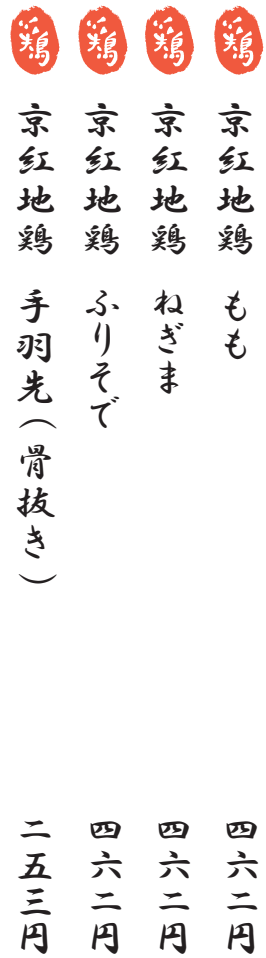 鶏
京紅地鶏 もも 四六二円
鶏
京紅地鶏 ねぎま 四六二円
鶏
京紅地鶏 ふりそで 四六二円
鶏
京紅地鶏 手羽先(骨抜き) 二五三円